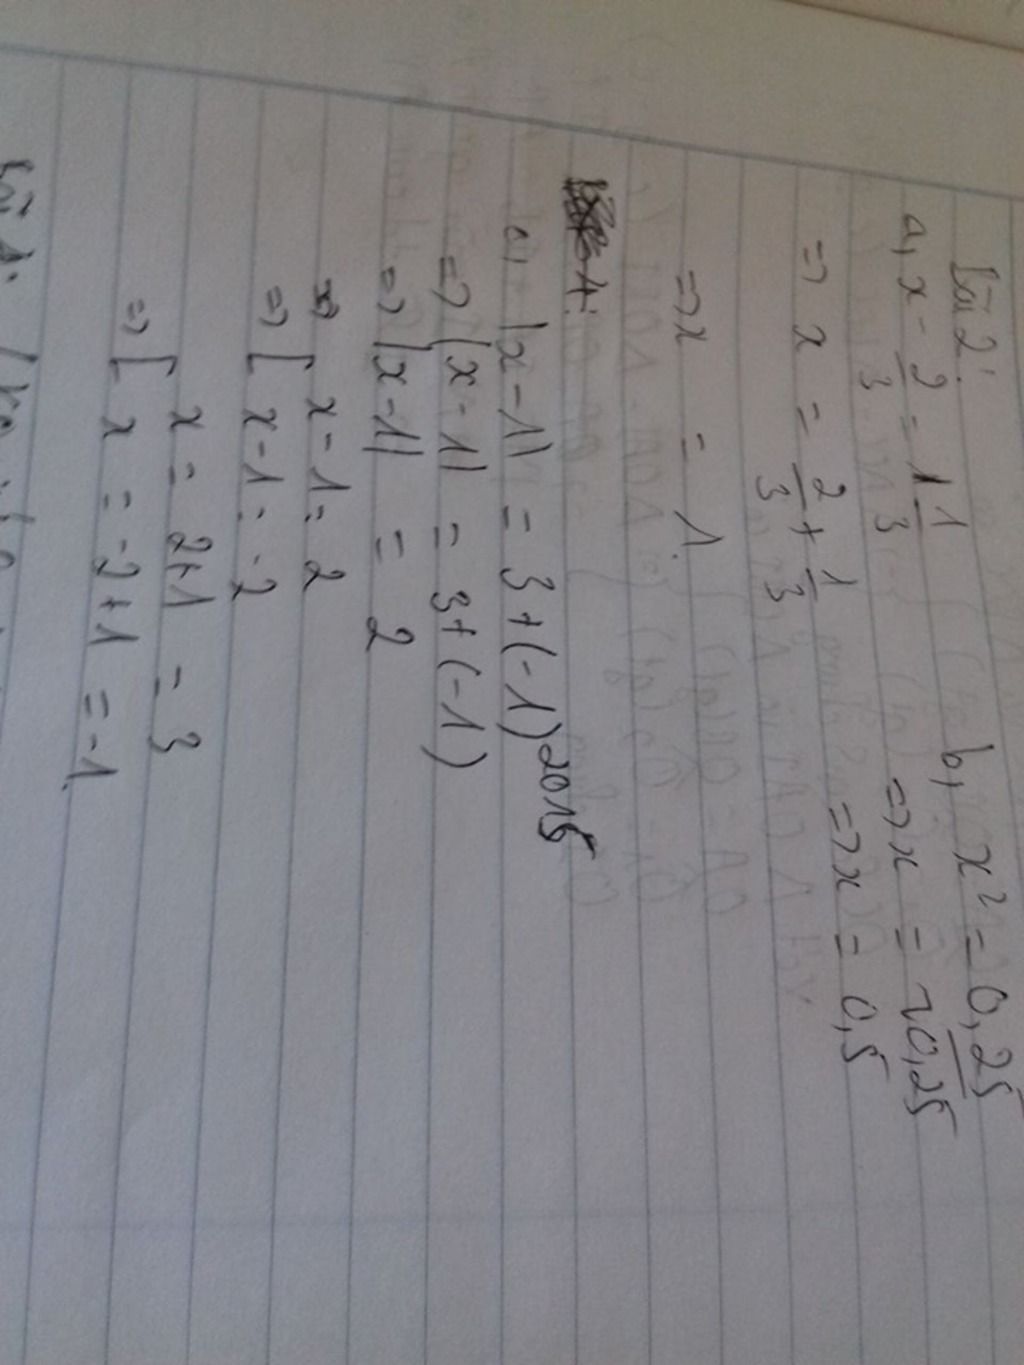 Bài 2:
a, x - 2/3 = 1/3
=> x = 2/3 + 1/3
=> x = 1.
b, x² = 0,25
=> x = √0,25
=> x = 0,5
c, |x-1| = 3+(-1)²⁰¹⁵
=> |x-1| = 3+(-1)
=> |x-1| = 2
=> [ x-1 = 2
x-1 = -2
=> [ x = 2+1 = 3
x = -2+1 = -1.